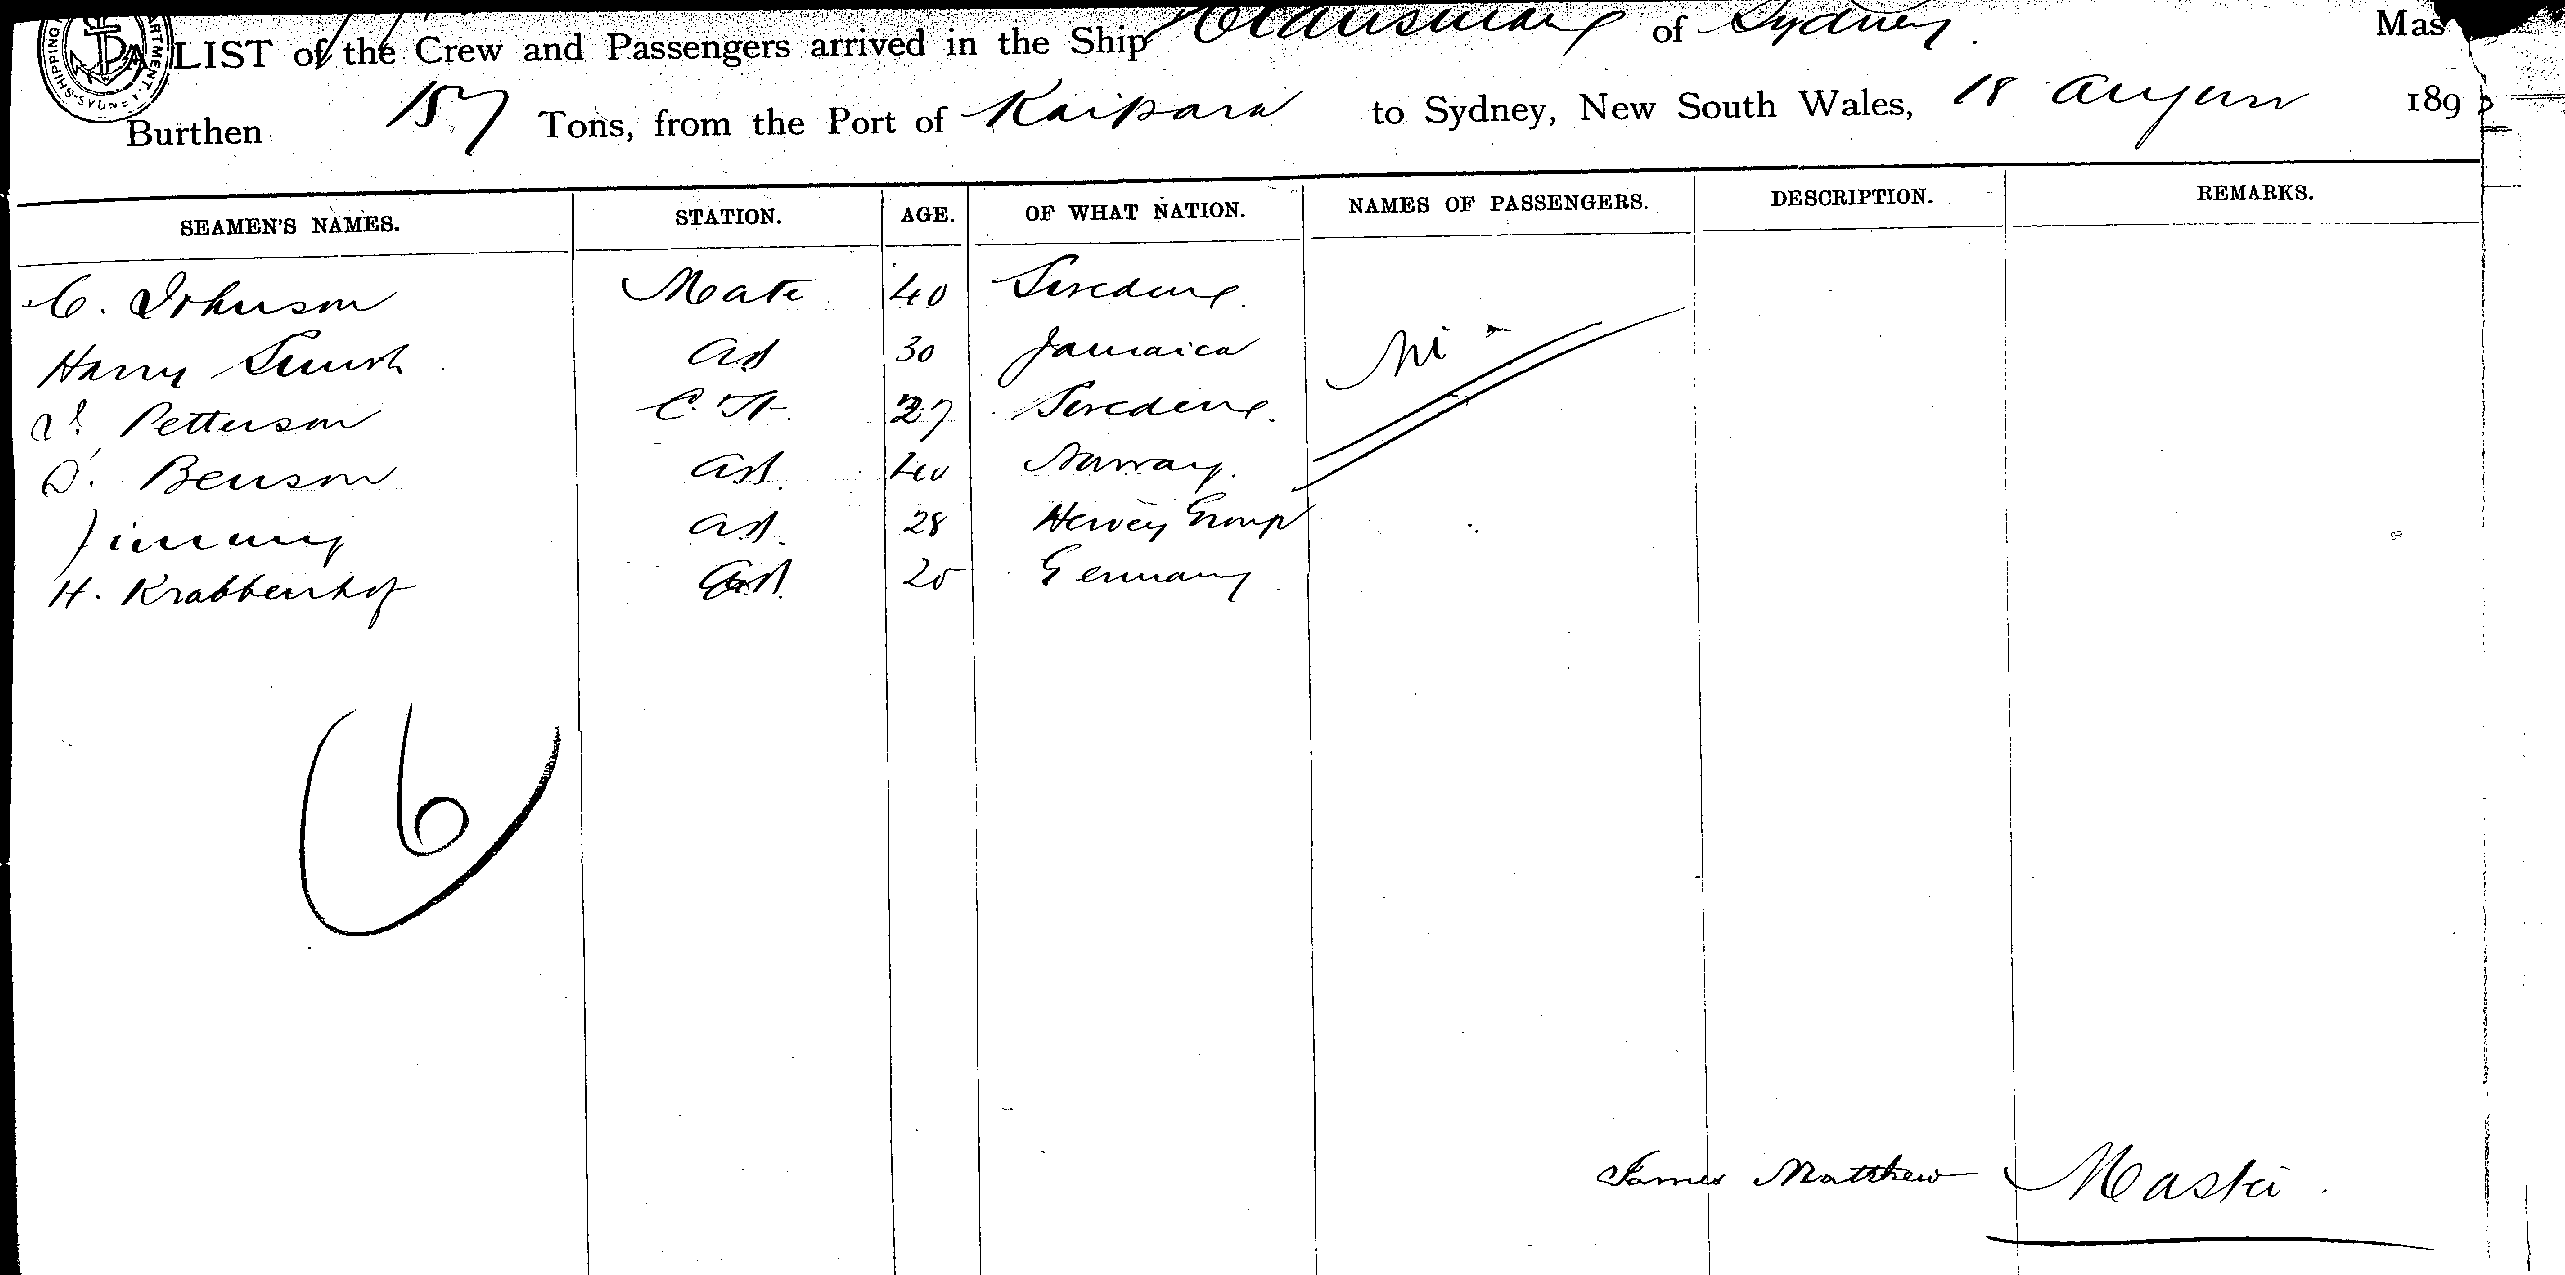 A LIST of the Crew and Passengers arrived in the Ship of Sydney Mas
Burthen 157 Tons, from the Port of Kaipara to Sydney, New South Wales, 18 August 189
SEAMEN'S NAMES. STATION. AGE. OF WHAT NATION. NAMES OF PASSENGERS. DESCRIPTION. REMARKS.
C. Johnson Mate 40 Sweden
Harry Smith AB 30 Jamaica Nil
Petterson C. St. 27 Sweden.
Benson AB. 40 Norway.
Jimmy AB. 28 Hervey Group
H. Krabbenhof AB. 20 Germany
6
James Matthew Master